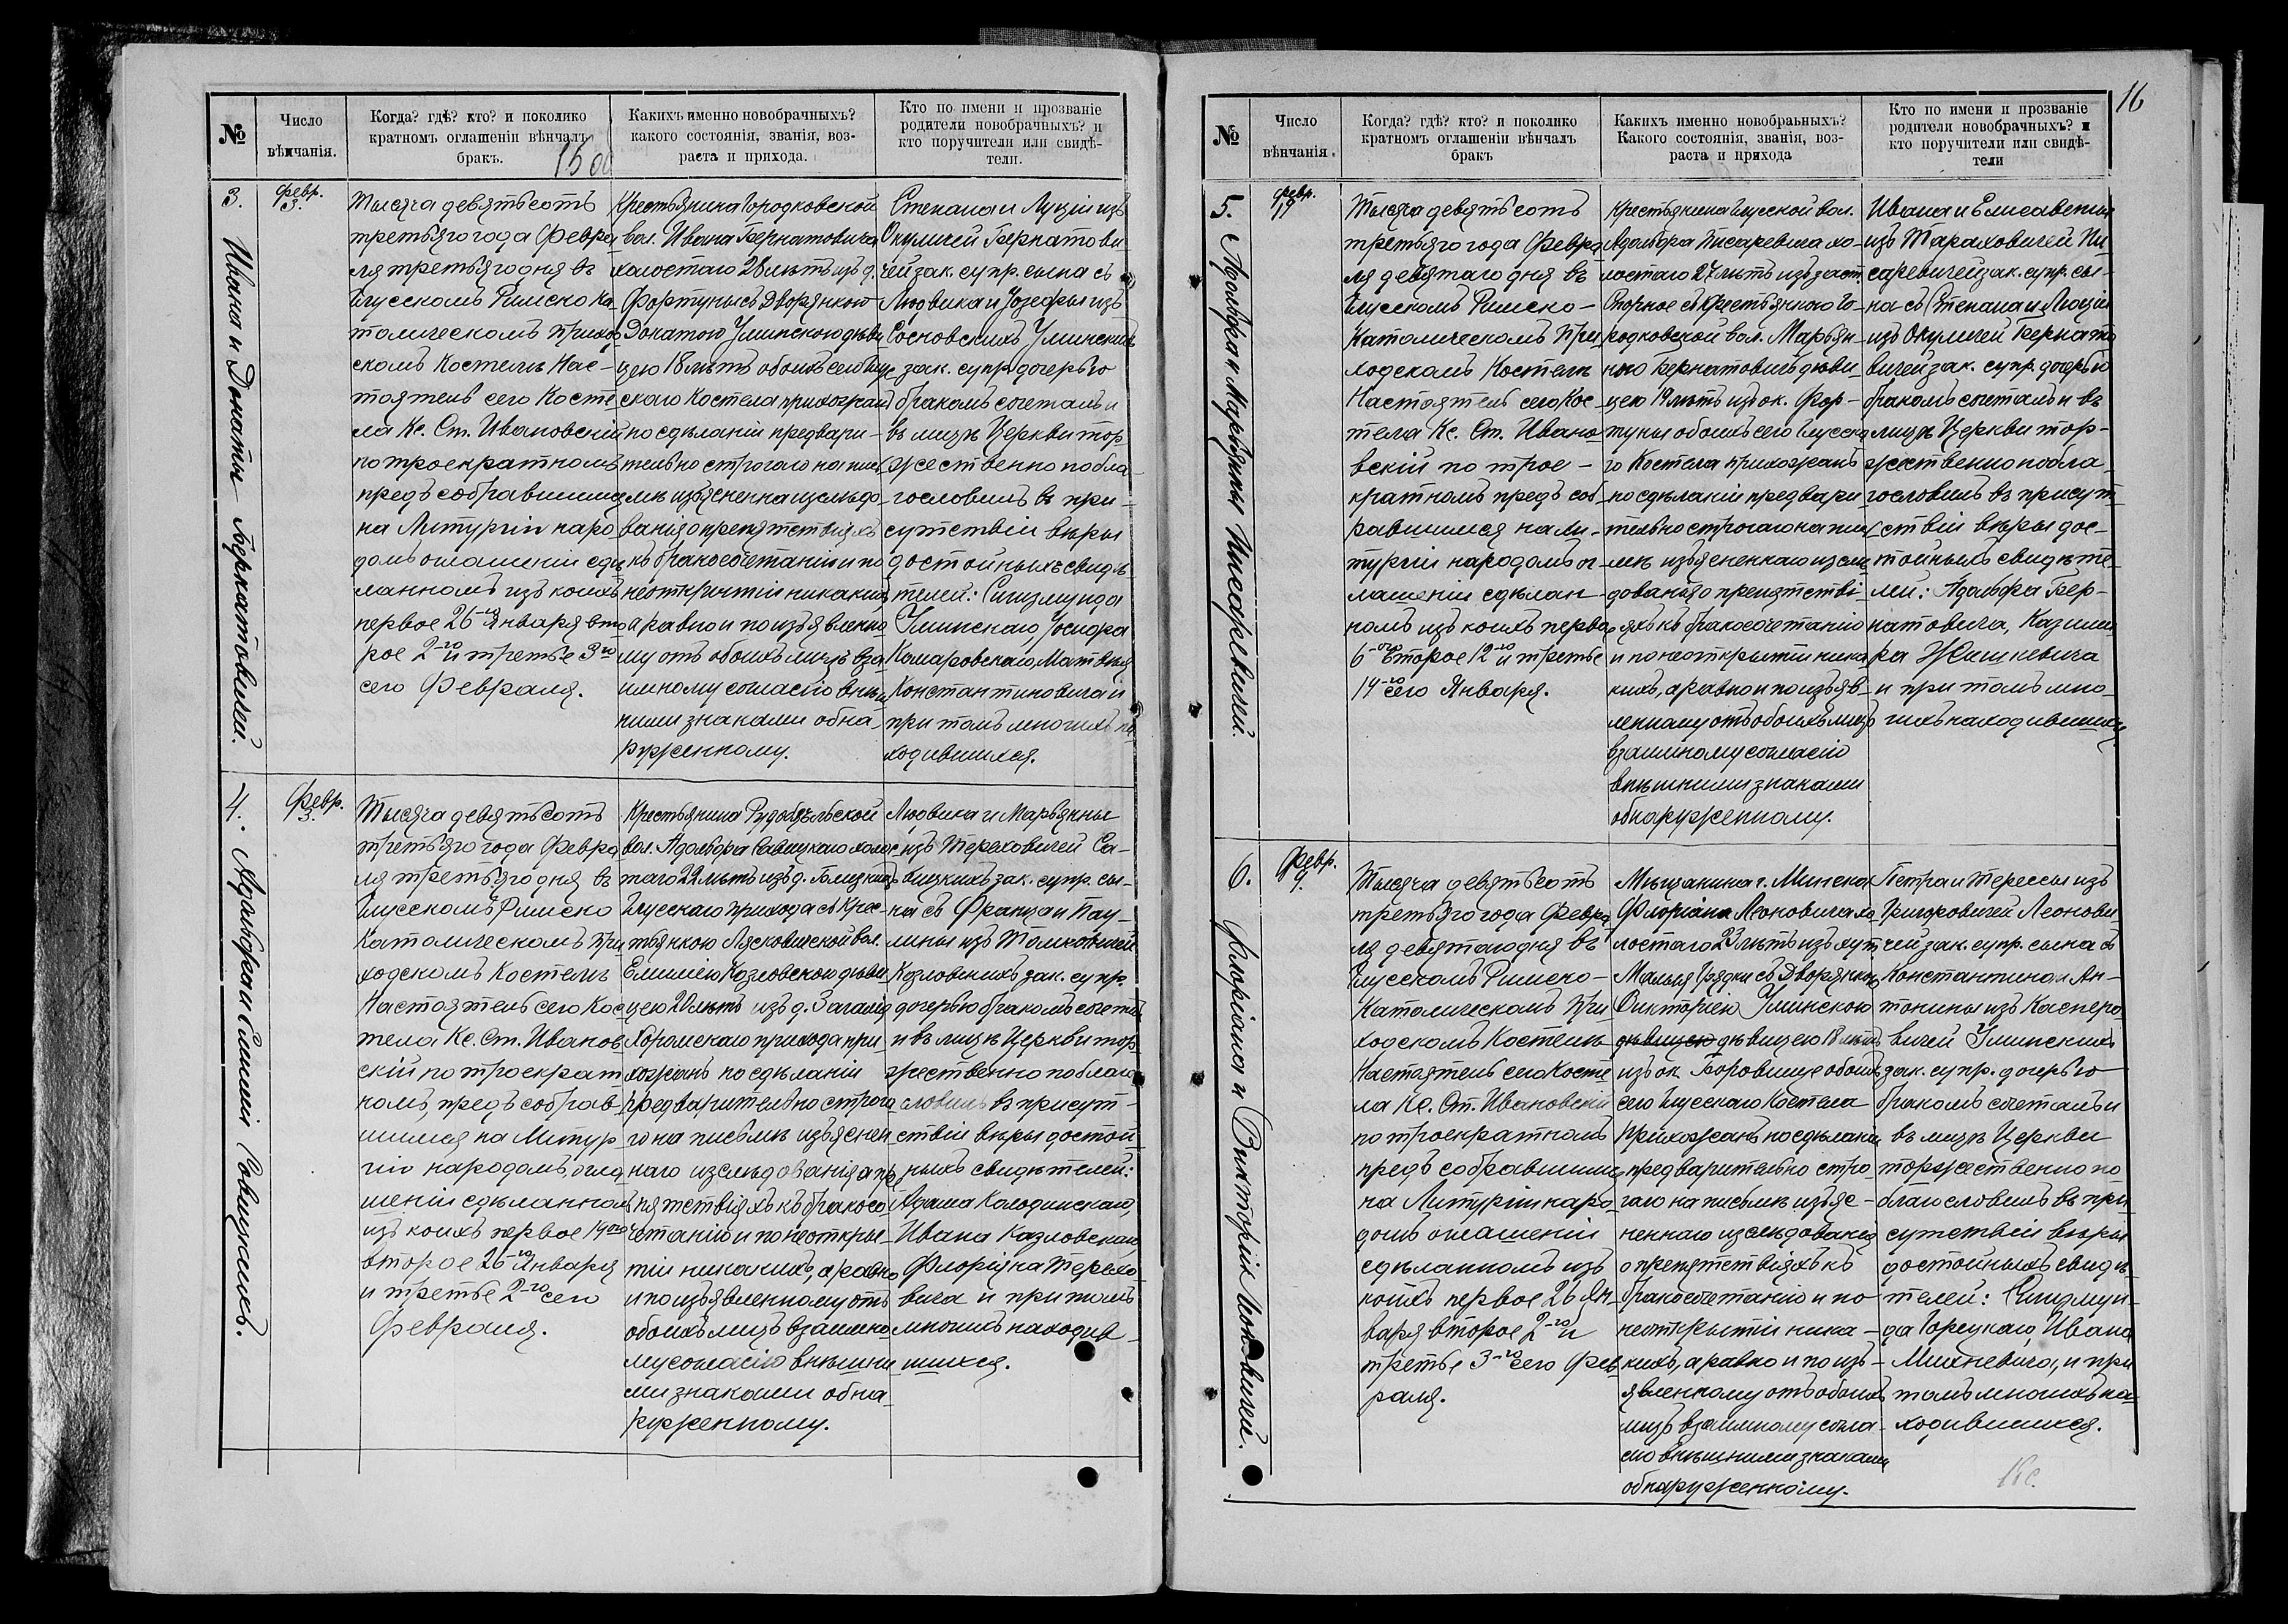 №
Число
вѣнчанія.
Когда? гдѣ? кто? и поколико
кратномъ оглашеніи вѣнчалъ
бракъ.
Какихъ именно новобрачныхъ?
какого состоянія, званія, воз-
раста и прихода.
Кто по имени и прозваніе
родители новобрачныхъ? и
кто поручители или свидѣ-
тели.
3.
Ивана и Донаты Бернатовичей.
Февр.
3.
Тысяча девятьсотъ
третьяго года Февра
ля третьяго дня въ
Глусскомъ Римско Ка
толическомъ приход
скомъ Костелѣ Нас-
тоятель сего Косте
ла Кс. Ст. Ивановскій
по троекратномъ
предъ собравшимся
на Литургіи наро
домъ оглашеніи сдѣ
ланномъ изъ коихъ
первое 26-го Января вто
рое 2-го и третье 3го
сего Февраля.
Крестьянина Городковской
вол. Ивана Бернатовича
холостаго 28 лѣтъ изъ д.
Фортуны съ Дворянкою
Донатою Улинскою дѣви
цею 18 лѣтъ обоихъ сего Глус
скаго Костела прихожан
по сдѣланіи предвари-
тельно строгаго на пись
мѣ изъясненна изслѣдо-
ванія о препятствіяхъ
къ бракосочетанію и по
неоткрытіи никакихъ
а равно и по изъявленно
му отъ обоихъ лицъ вза
имному согласію внѣш
ними знаками обна
руженному.
Степана и Луціи изъ
Окуличей Бернатови
чей зак. супр. сына съ
Людвика и Іозефы изъ
Сосновскихъ Улинскихъ
зак. супр. дочерью
бракомъ сочеталъ и
въ лицѣ Церкви тор
жественно побла-
гословилъ въ при-
сутствіи вѣры
достойныхъ свидѣ-
телей: Сигизмунда
Улинскаго, Іосифа
Комаровскаго, Матвѣя
Константиновича и
при томъ многихъ на
ходившихся.
4.
Адольфа и Емиліи Савицкихъ.
Февр.
3.
Тысяча девятьсотъ
третьяго года Февра
ля третьяго дня въ
Глусскомъ Римско
Католическомъ При
ходскомъ Костелѣ
Настоятель сего Кос
тела Кс. Ст. Иванов
скій по троекрат
номъ, предъ собрав-
шимся на Литур
гію народомъ, огла
шеніи сдѣланномъ
изъ коихъ первое 19го
второе 26-го Января
и третье 2-го сего
Февраля.
Крестьянина Рудобѣльской
вол. Адольфа Савицкаго холос
таго 22 лѣтъ изъ д.
Глусскаго прихода съ Крес-
тьянкою Лясковичской вол.
Емиліею Козловскою дѣви
цею 20 лѣтъ изъ д.
прихода при-
хожанъ по сдѣланіи
предварительно строга
го на письмѣ изъяснен
наго изслѣдованія о пре
пятствіяхъ къ бракосо
четанію и по неоткры-
тіи никакихъ, а равно
и по изъявленному отъ
обоихъ лицъ взаимно
му согласію внѣшни
ми знаками обна-
руженному.
Людвика и Марьянны
изъ Тереховичей Са-
вицкихъ зак. супр. сы-
на съ Франца и Пау-
лины изъ
Козловскихъ зак. супр.
дочерью бракомъ сочеталъ
и въ лицѣ Церкви тор-
жественно поблаго
словилъ въ присут-
ствіи вѣры достой
ныхъ свидѣтелей:
Адама Колодинскаго,
Ивана Казловскаго,
Флоріяна Терехо
вича и при томъ
многихъ находив-
шихся.
16
№
Число
вѣнчанія.
Когда? гдѣ? кто? и поколико
кратномъ оглашеніи вѣнчалъ
бракъ
Какихъ именно новобраьныхъ?
Какого состоянія, званія, воз-
раста и прихода
Кто по имени и прозваніе
родители новобрачныхъ? и
кто поручители или свидѣ-
тели
5.
Адольфа и Марьяны Писаревичей.
Февр.
Тысяча девятьсотъ
третьяго года Февра
ля девятаго дня въ
Глусскомъ Римско-
Католическомъ При
ходскомъ Костелѣ
Настоятель сего Кос-
тела Кс. Ст. Ивано-
вскій по трое-
кратномъ предъ соб-
равшимся на Ли-
тургіи народомъ ог-
лашеніи сдѣлан-
номъ изъ коихъ перво
6-ого второе 12-го и третье
19-го сего Января.
Крестьянина Глусской вол.
Адольфа Писаревича хо-
лостаго 27 лѣтъ изъ заст.
съ Крестьянкою Го-
родковской вол. Марьян-
ною Бернатовичъ дѣви-
цею 19 лѣтъ изъ ок. Фор-
туны обоихъ сего Глусска
го Костела прихожанъ
по сдѣланіи предвари
тельно строгаго на пись
мѣ изъясненнаго изслѣ
дованья о препятстві-
яхъ къ бракосочетанію
и по неоткрытіи ника
кихъ, а равно и по изъяв-
ленному отъ обоихъ лицъ
взаимному согласію
внѣшними знаками
обнаруженному.
Ивана и Елисаветы
изъ Тараховичей Пи
саревичей зак. супр. сы-
на съ Степана и Люціи
изъ Окуличей Бернато
вичей зак. супр. дочерью
бракомъ сочеталъ и въ
лицѣ Церкви тор-
жественно побла-
гословилъ въ присут
ствіи вѣры дос-
тойныхъ свидѣте-
лей: Адольфа Бер-
натовича, Казими
ра
и при томъ мно-
гихъ находившихся.
6.
Флоріана и Викторіи Леоновичей.
Февр.
9.
Тысяча девятьсотъ
третьяго года Февра
ля девятаго дня въ
Глусскомъ Римско-
Католическомъ При
ходскомъ Костелѣ
Настоятель сего Косте
ла Кс. Ст. Ивановскій
по троекратномъ
предъ собравшимся
на Литургіи наро-
домъ оглашеніи
сдѣланномъ изъ
коихъ первое 26 Ян-
варя второе 2-го и
третье 3-го сего Фев
раля.
Мѣщанина г. Минска
Флоріана Леоновича хо
лостаго 23 лѣтъ изъ хут.
Малыя Грядки съ Дворянкою
Викторіею Улинскою
дѣвицею дѣвицею 18 лѣтъ
изъ ок. Боровище обоихъ
сего Глусскаго Костела
прихожанъ по сдѣланіи
предварительно стро
гаго на письмѣ изъяс-
неннаго изслѣдованія
о препятствіяхъ къ
бракосочетанію и по
неоткрытіи ника-
кихъ, а равно и по изъ-
явленному отъ обоихъ
лицъ взаимному согла-
сію внѣшними знаками
обнаруженному.
Петра и Терессы изъ
Григоровичей Леонови-
чей зак. супр. сына съ
Константина и Ан-
тонины изъ Касперо
вичей Улинскихъ
зак. супр. дочерью
бракомъ сочеталъ и
въ лицѣ Церкви
торжественно по
благословилъ въ при
сутствіи вѣры
достойныхъ свидѣ-
телей: Сигизмун-
да Горецкаго, Ивана
Михневича, и при
томъ многихъ на-
ходившихся.